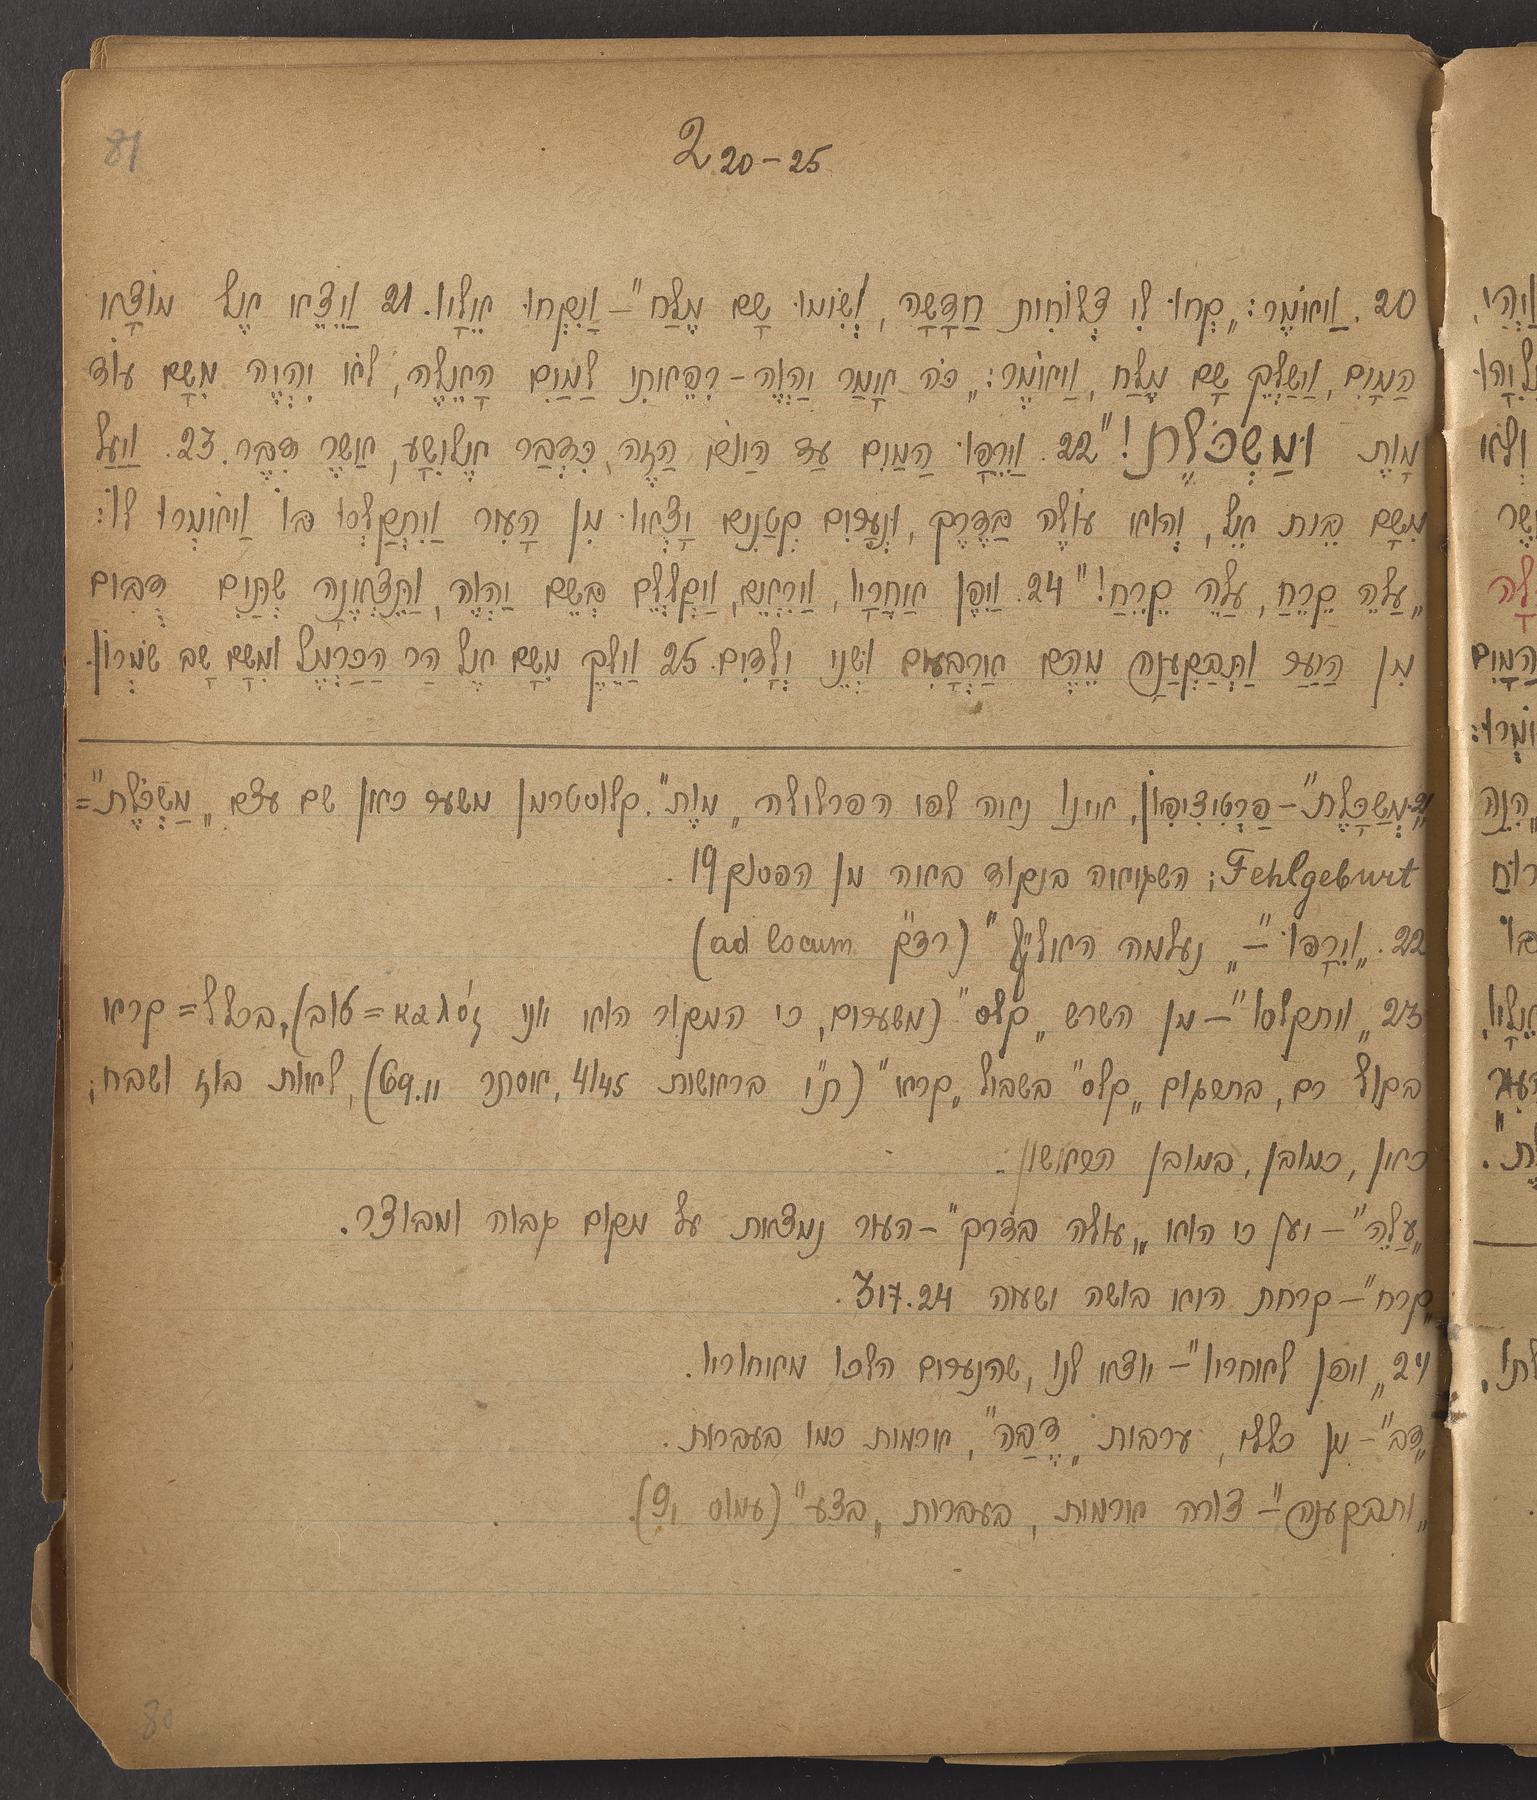 81
2 20-25
20. וַיֹּאמֶר: „קְחוּ לִי צְלוֹחִית חֲדָשָׁה, וְשִׂימוּ שָׁם מֶלַח" – וַיִּקְחוּ אֵלָיו. 21 וַיֵּצֵא אֶל מוֹצָא
הַמַּיִם, וַיַּשְׁלֶךְ שָׁם מֶלַח, וַיֹּאמֶר: „כֹּה אָמַר יַהְוֶה – רִפֵּאתִי לַמַּיִם הָאֵלֶּה, לֹא יִהְיֶה מִשָּׁם עוֹד
מָוֶת וּמַשְׁכֹּלֶת!" 22. וַיֵּרָפוּ הַמַּיִם עַד הַיּוֹם הַזֶּה, כִּדְבַר אֱלִישָׁע, אֲשֶׁר דִּבֶּר. 23. וַיַּעַל
מִשָּׁם בֵּית אֵל, וְהוּא עוֹלֶה בַּדֶּרֶךְ, וּנְעָרִים קְטַנִּים יָצְאוּ מִן הָעִיר וַיִּתְקַלְּסוּ בוֹ וַיֹּאמְרוּ לוֹ:
„עֲלֵה קֵרֵחַ, עֲלֵה קֵרֵחַ!" 24. וַיִּפֶן אַחֲרָיו, וַיִּרְאֵם, וַיְקַלְלֵם בְּשֵׁם יַהְוֶה, וַתֵּצֶאנָה שְׁתַּיִם דֻּבִּים
מִן הַיַּעַר וַתְּבַקַּעְנָה מֵהֶם אַרְבָּעִים וּשְׁנֵי יְלָדִים. 25 וַיֵּלֶךְ מִשָּׁם אֶל הַר הַכַּרְמֶל וּמִשָּׁם שָׁב שֹׁמְרוֹן.
21. „מְשַׁכָּלֶת" – פַּרְטִיצִיפִּיוֹן, איננו נאה לפי הפרלולה „מָוֶת". קלוסטרמן משער כאן שם עצם „מַשְׁכֹּלֶת" =
Fehlgeburt; השגיאה בנקוד באה מן הפסוק 19.
22. „וַיֵּרָפוּ" – „נעלמה האל״ף" (רד״ק ad locum)
23 „ויתקלסו" – מן השרש „קלס" (משערים, כי המקור הוא יוני καλός = טוב), בכלל = קרא
בקול רם, בתרגום „קלס" בשביל „קרא" (ת״י בראשית 41 45, אסתר 6 9. 11), לאות בוז ושבח;
כאן, כמובן, במובן הראשון.
„עֲלֵה" – יען כי הוא „עולה בדרך" – העיר נמצאת על מקום גבוה ומבוצר.
„קרח" – קרחת היא בושה ישעיה 3 17. 24.
24 „ויפן לאחריו" – יוצא לנו, שהנערים הלכו מאחוריו.
„דב" – מין כללי, ערבית „דֻבַּה", ארמית כמו בעברית.
„ותבקענה" – צורה ארמית, בעברית „בצע" (עמוס 9 1)
80